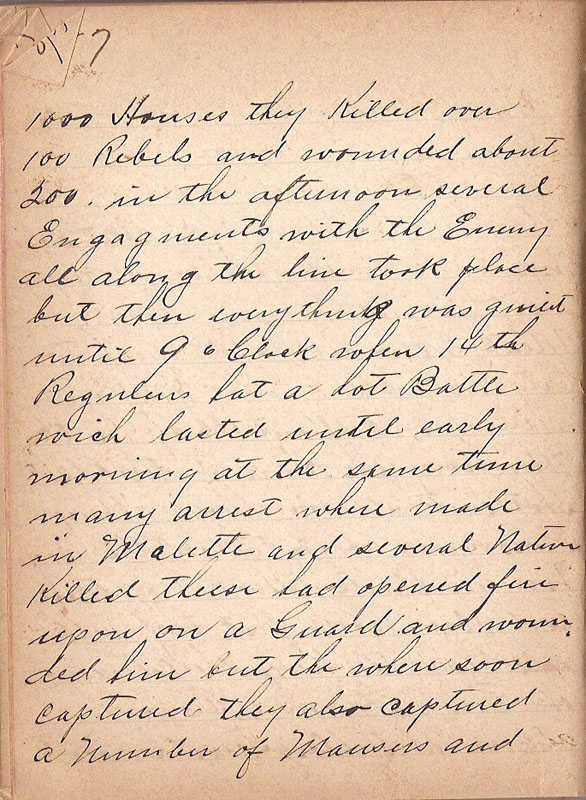 7
1000 Houses they Killed over
100 Rebels and wounded about
200. in the afternoon several
Engagments with the Enemy
all along the line took place
but then everything was quiet
until 9 o Clock when 14 th
Regulers hat a hot Battle
wich lasted until early
morning at the same time
many arrest where made
in Malette and several Native
Killed theese had opened fire
upon on a Guard and woun
ded him but the where soon
captured they also captured
a Number of Mausers and